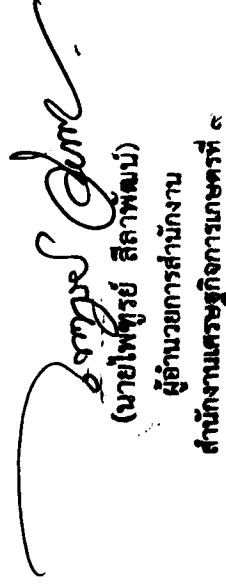 (นายไพฑูรย์ สีลาพัฒน์)
ผู้อำนวยการสำนักงาน
สำนักงานเศรษฐกิจการเกษตรที่ ๙